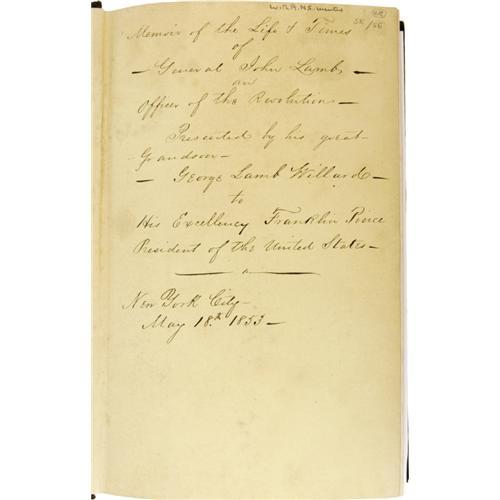 Memoir of the Life & Times
of
— General John Lamb —
an
Officer of the Revolution —
Presented by his great
Grandson —
— George Lamb Willard —
to
His Excellency Franklin Pierce
President of the United States —
New York City —
May 18th 1853 —